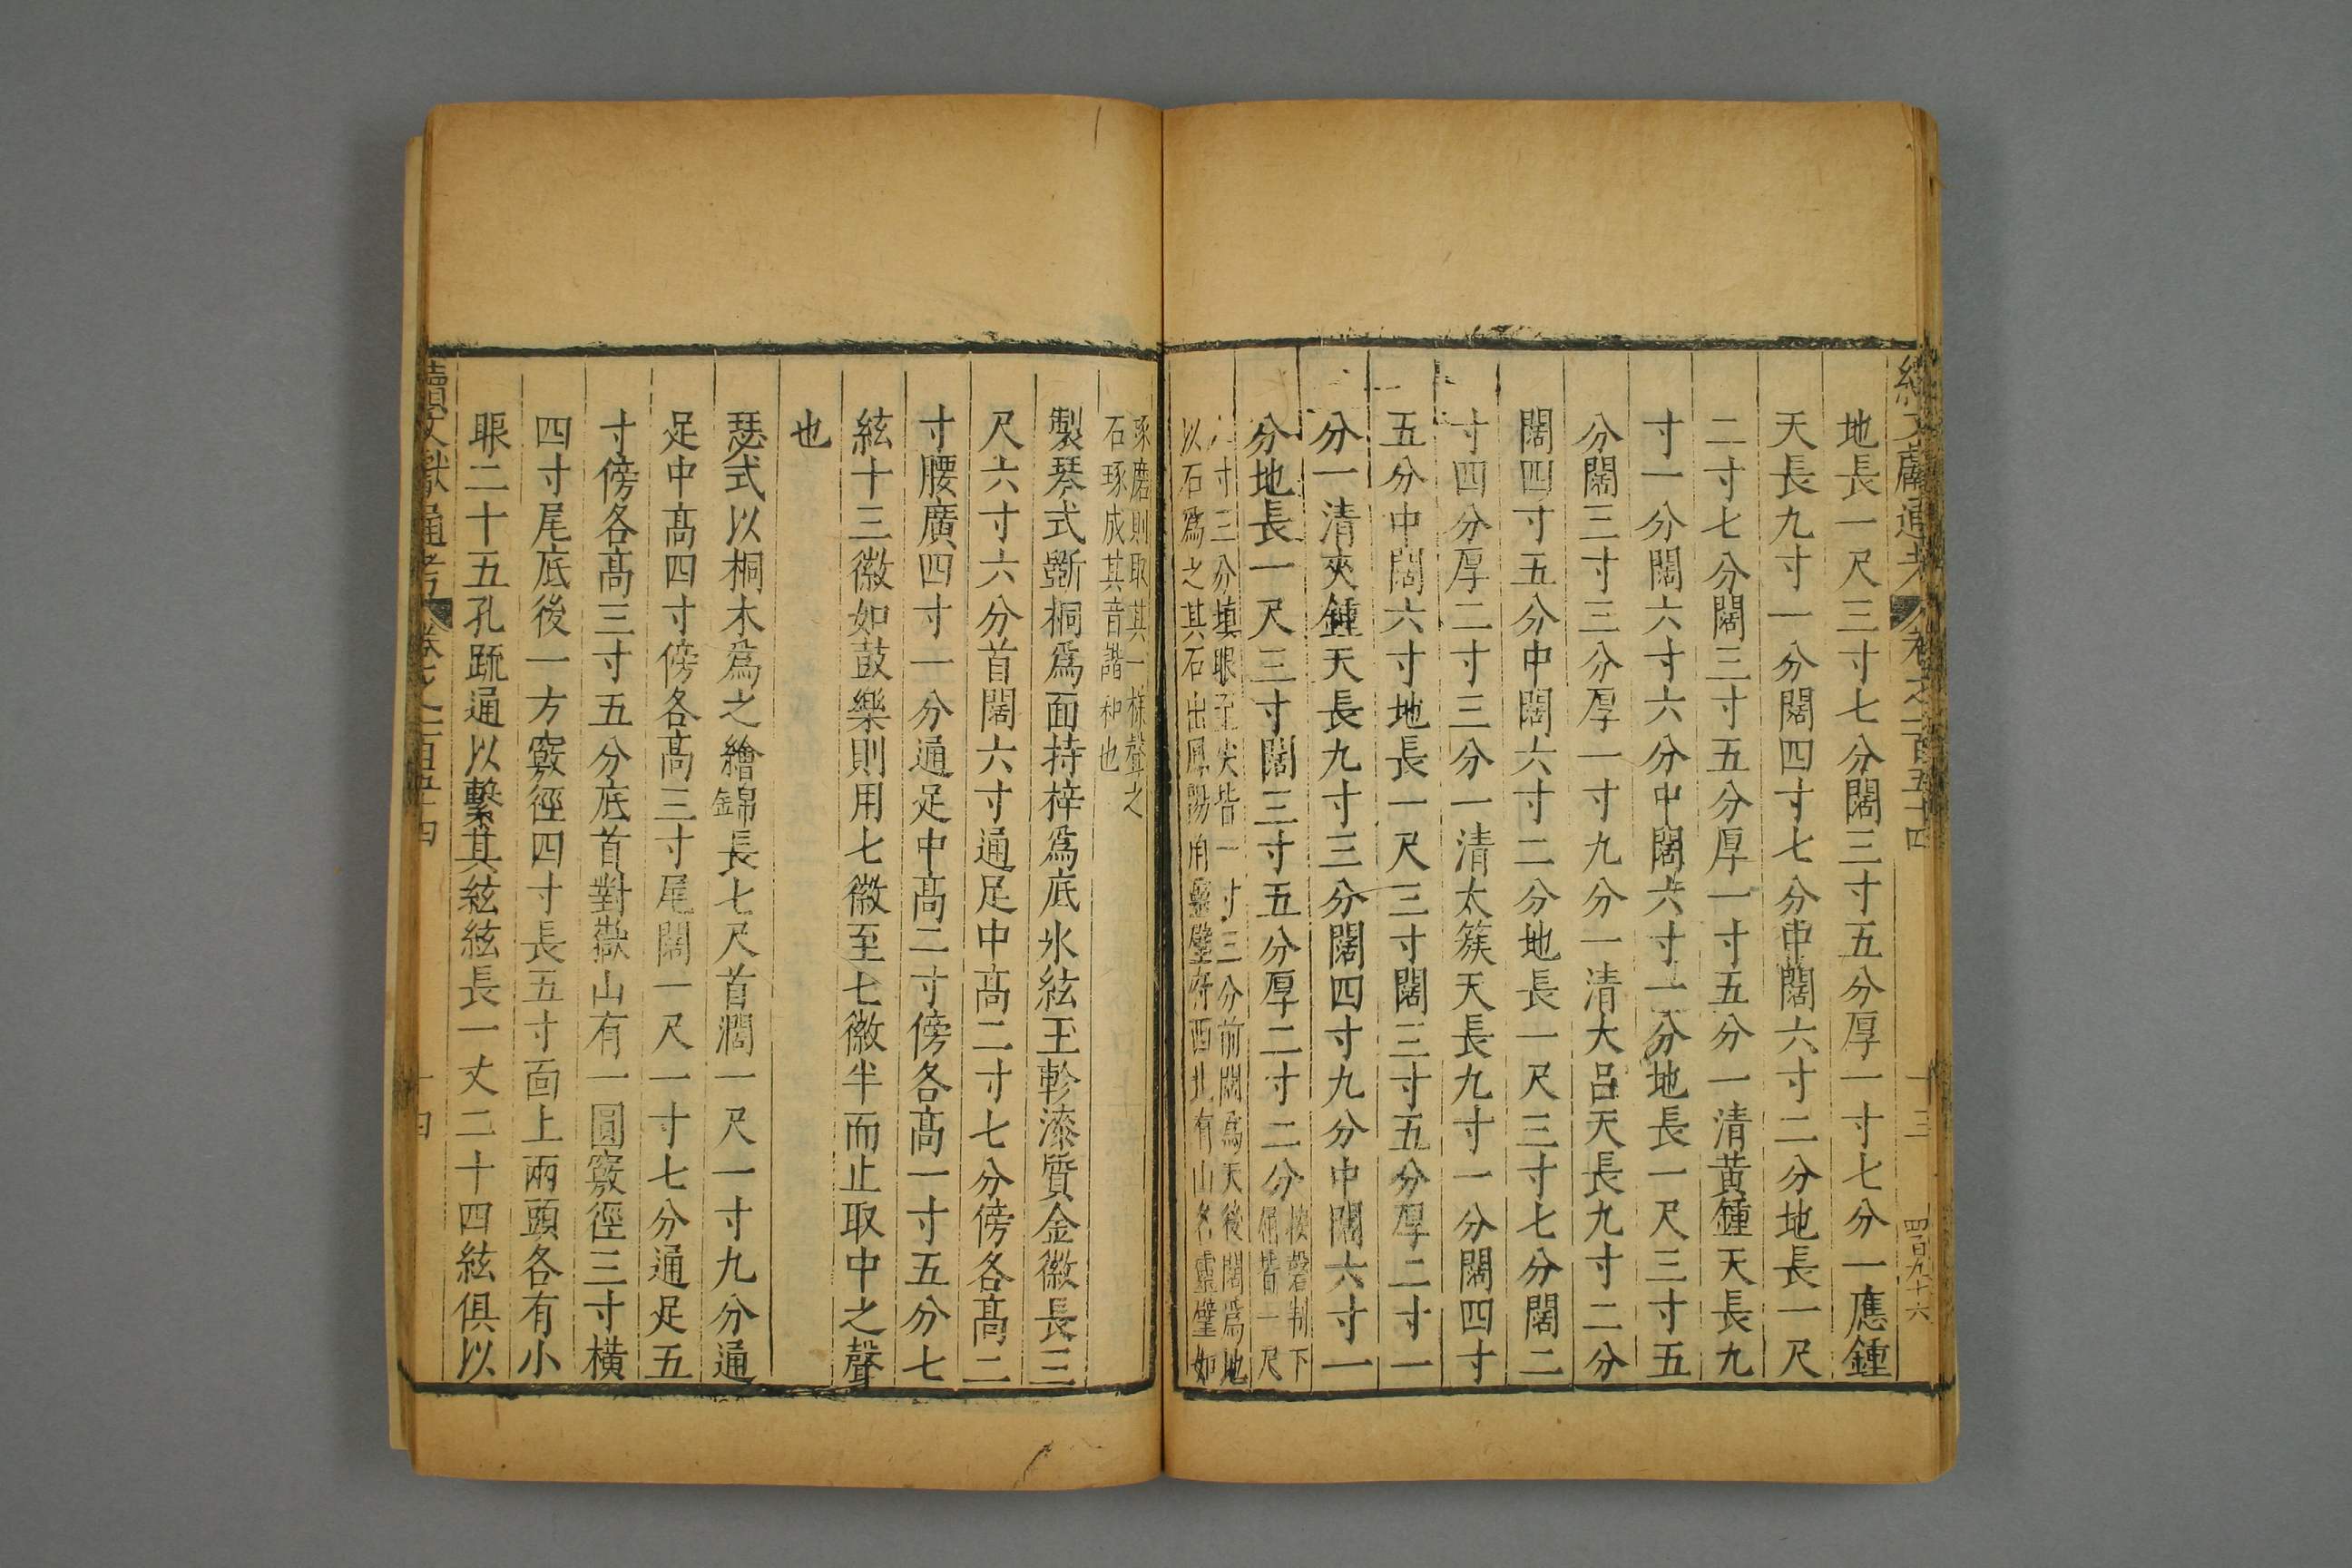 續文獻通考 卷之一百五十四 十三 四百九十六
地長一尺三寸七分闊三寸五分厚一寸七分一應鍾
天長九寸一分闊四寸七分中闊六寸二分地長一尺
二寸七分闊三寸五分厚一寸五分一清黄鍾天長九
寸一分闊六寸六分中闊六寸一分地長一尺三寸五
分闊三寸三分厚一寸九分一清大呂天長九寸二分
闊四寸五分中闊六寸二分地長一尺三寸七分闊二
寸四分厚二寸三分一清太簇天長九寸一分闊四寸
五分中闊六寸地長一尺三寸闊三寸五分厚二寸一
分一清夾鍾天長九寸三分闊四寸九分中闊六寸一
分地長一尺三寸闊三寸五分厚二寸二分 按磬制下
俑皆一尺
八寸三分填眼至尖皆一寸三分前闊為天後闊為地
以石爲之其石出鳳陽府靈璧府西北有山名靈璧如
琢磨則取其一樣聲之
石琢成其音諧和也
製琴式斵桐爲面持梓爲底氷絃玉軫漆質金徽長三
尺六寸六分首闊六寸通足中髙二寸七分傍各髙二
寸腰廣四寸一分通足中髙二寸傍各髙一寸五分七
絃十三徽如鼓樂則用七徽至七徽半而止取中之聲
也
瑟式以桐木爲之繪錦長七尺首濶一尺一寸九分通
足中髙四寸傍各髙三寸尾闊一尺一寸七分通足五
寸傍各髙三寸五分底首對嶽山有一圓竅徑三寸橫
四寸尾底後一方竅徑四寸長五寸靣上兩頭各有小
眼二十五孔䟽通以繫其絃絃長一丈二十四絃俱以
續文獻通考 卷之一百五十四 十四